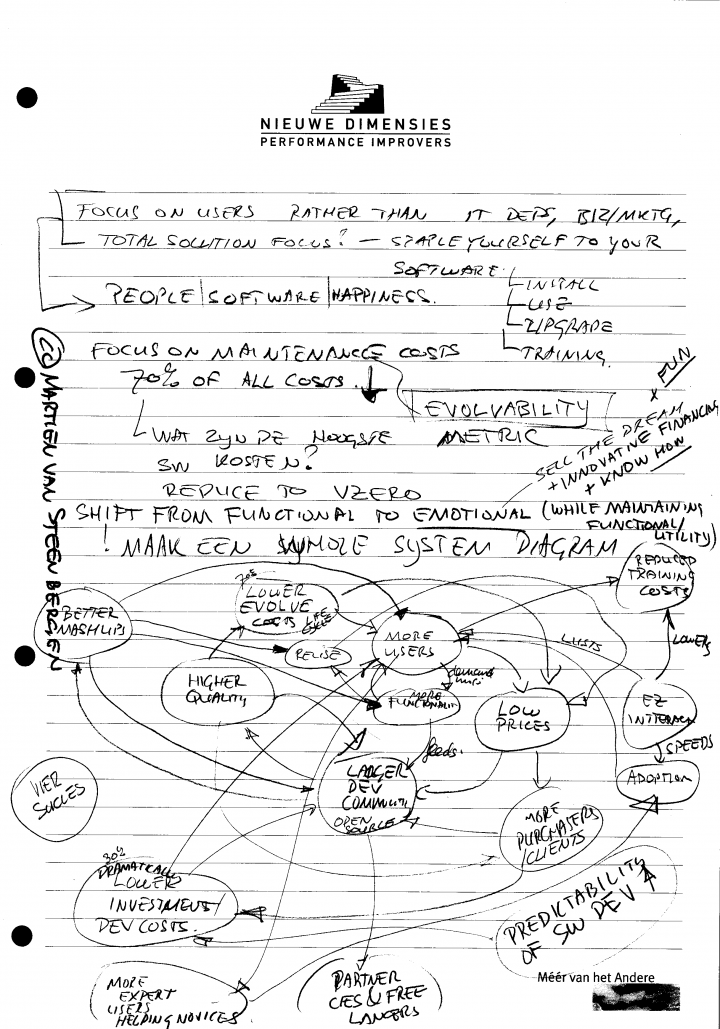 NIEUWE DIMENSIES
PERFORMANCE IMPROVERS
FOCUS ON USERS RATHER THAN IT DEPS, BIZ/MKTG,
TOTAL SOLUTION FOCUS? — STAPLE YOURSELF TO YOUR
SOFTWARE
INSTALL
PEOPLE | SOFTWARE | HAPPINESS.
USE
UPGRADE
TRAINING.
FOCUS ON MAINTENANCE COSTS
70% OF ALL COSTS.
EVOLVABILITY
METRIC
WAT ZIJN DE HOOGSTE
SW KOSTEN?
REDUCE TO VZERO
FUN
SELL THE DREAM
+ INNOVATIVE FINANCING
+ KNOW HOW
SHIFT FROM FUNCTIONAL TO EMOTIONAL (WHILE MAINTAINING
FUNCTIONAL/
UTILITY)
! MAAK EEN SYSTEM DIAGRAM
(CC) MARTIEN VAN STEENBERGEN
BETTER
MASHUPS
70%
LOWER
EVOLVE
COSTS LIFE
CYCLE
MORE
USERS
REDUCED
TRAINING
COSTS
REUSE
LUSTS
LOWERS
HIGHER
QUALITY
demand
MORE
FUNCTIONALITY
LOW
PRICES
EZ
INTERACT
SPEEDS
feeds.
ADOPTION
LARGER
DEV
COMMUNITY
OPEN
SOURCE
VIER
SUCCES
MORE
PURCHASERS
CLIENTS
30%
DRAMATICALLY
LOWER
INVESTMENT/
DEV COSTS.
PREDICTABILITY
OF SW DEV
MORE
EXPERT
USERS
HELPING NOVICES.
PARTNER
CIES & FREE
LANCERS
Méér van het Andere